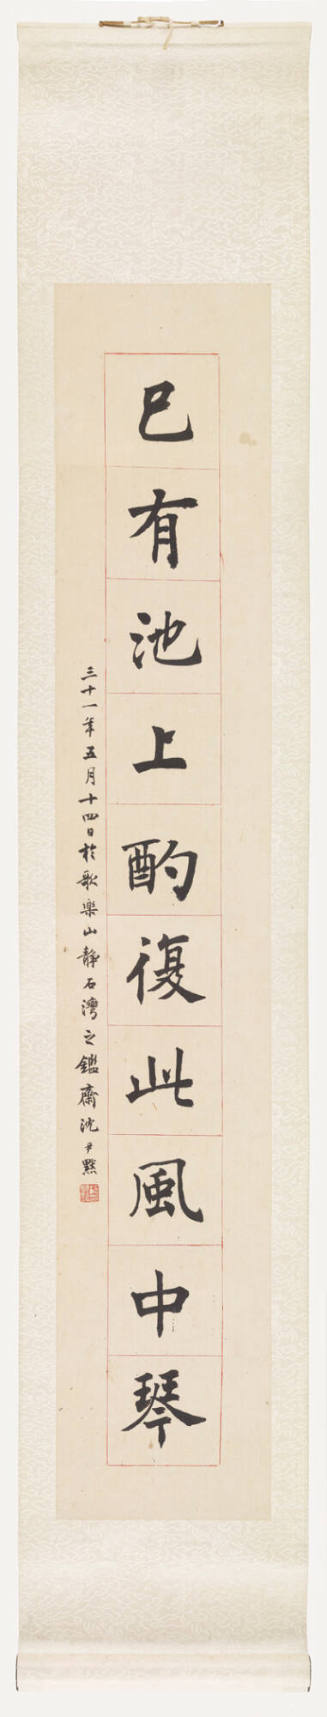 已有池上酌復此風中琴
三十一年五月十四日於歌樂山靜石灣之鑑齋沈尹默